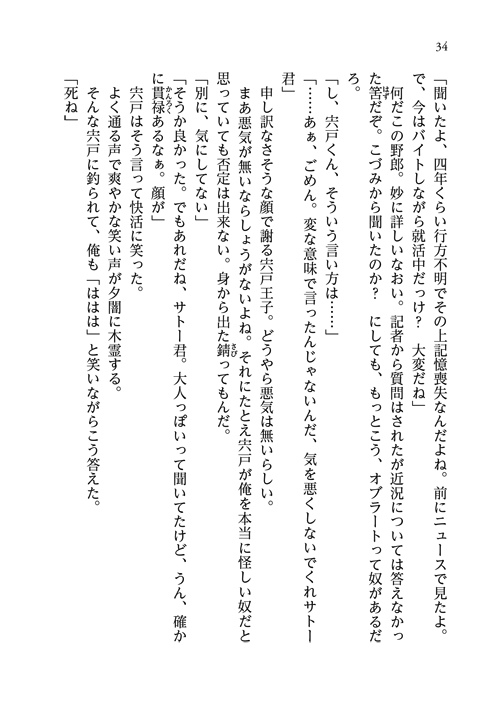 34
「聞いたよ、四年くらい行方不明でその上記憶喪失なんだよね。前にニュースで見たよ。
で、今はバイトしながら就活中だっけ？　大変だね」
何だこの野郎。妙に詳しいなおい。記者から質問はされたが近況については答えなかっ
た筈だぞ。こづみから聞いたのか？　にしても、もっとこう、オブラートって奴があるだ
ろ。
「し、宍戸くん、そういう言い方は……」
「……あぁ、ごめん。変な意味で言ったんじゃないんだ、気を悪くしないでくれサトー
君」
申し訳なさそうな顔で謝る宍戸王子。どうやら悪気は無いらしい。
まあ悪気が無いならしょうがないよね。それにたとえ宍戸が俺を本当に怪しい奴だと
思っていても否定は出来ない。身から出た錆ってもんだ。
「別に、気にしてない」
「そうか良かった。でもあれだね、サトー君。大人っぽいって聞いてたけど、うん、確か
に貫禄あるなぁ。顔が」
宍戸はそう言って快活に笑った。
よく通る声で爽やかな笑い声が夕闇に木霊する。
そんな宍戸に釣られて、俺も「ははは」と笑いながらこう答えた。
「死ね」